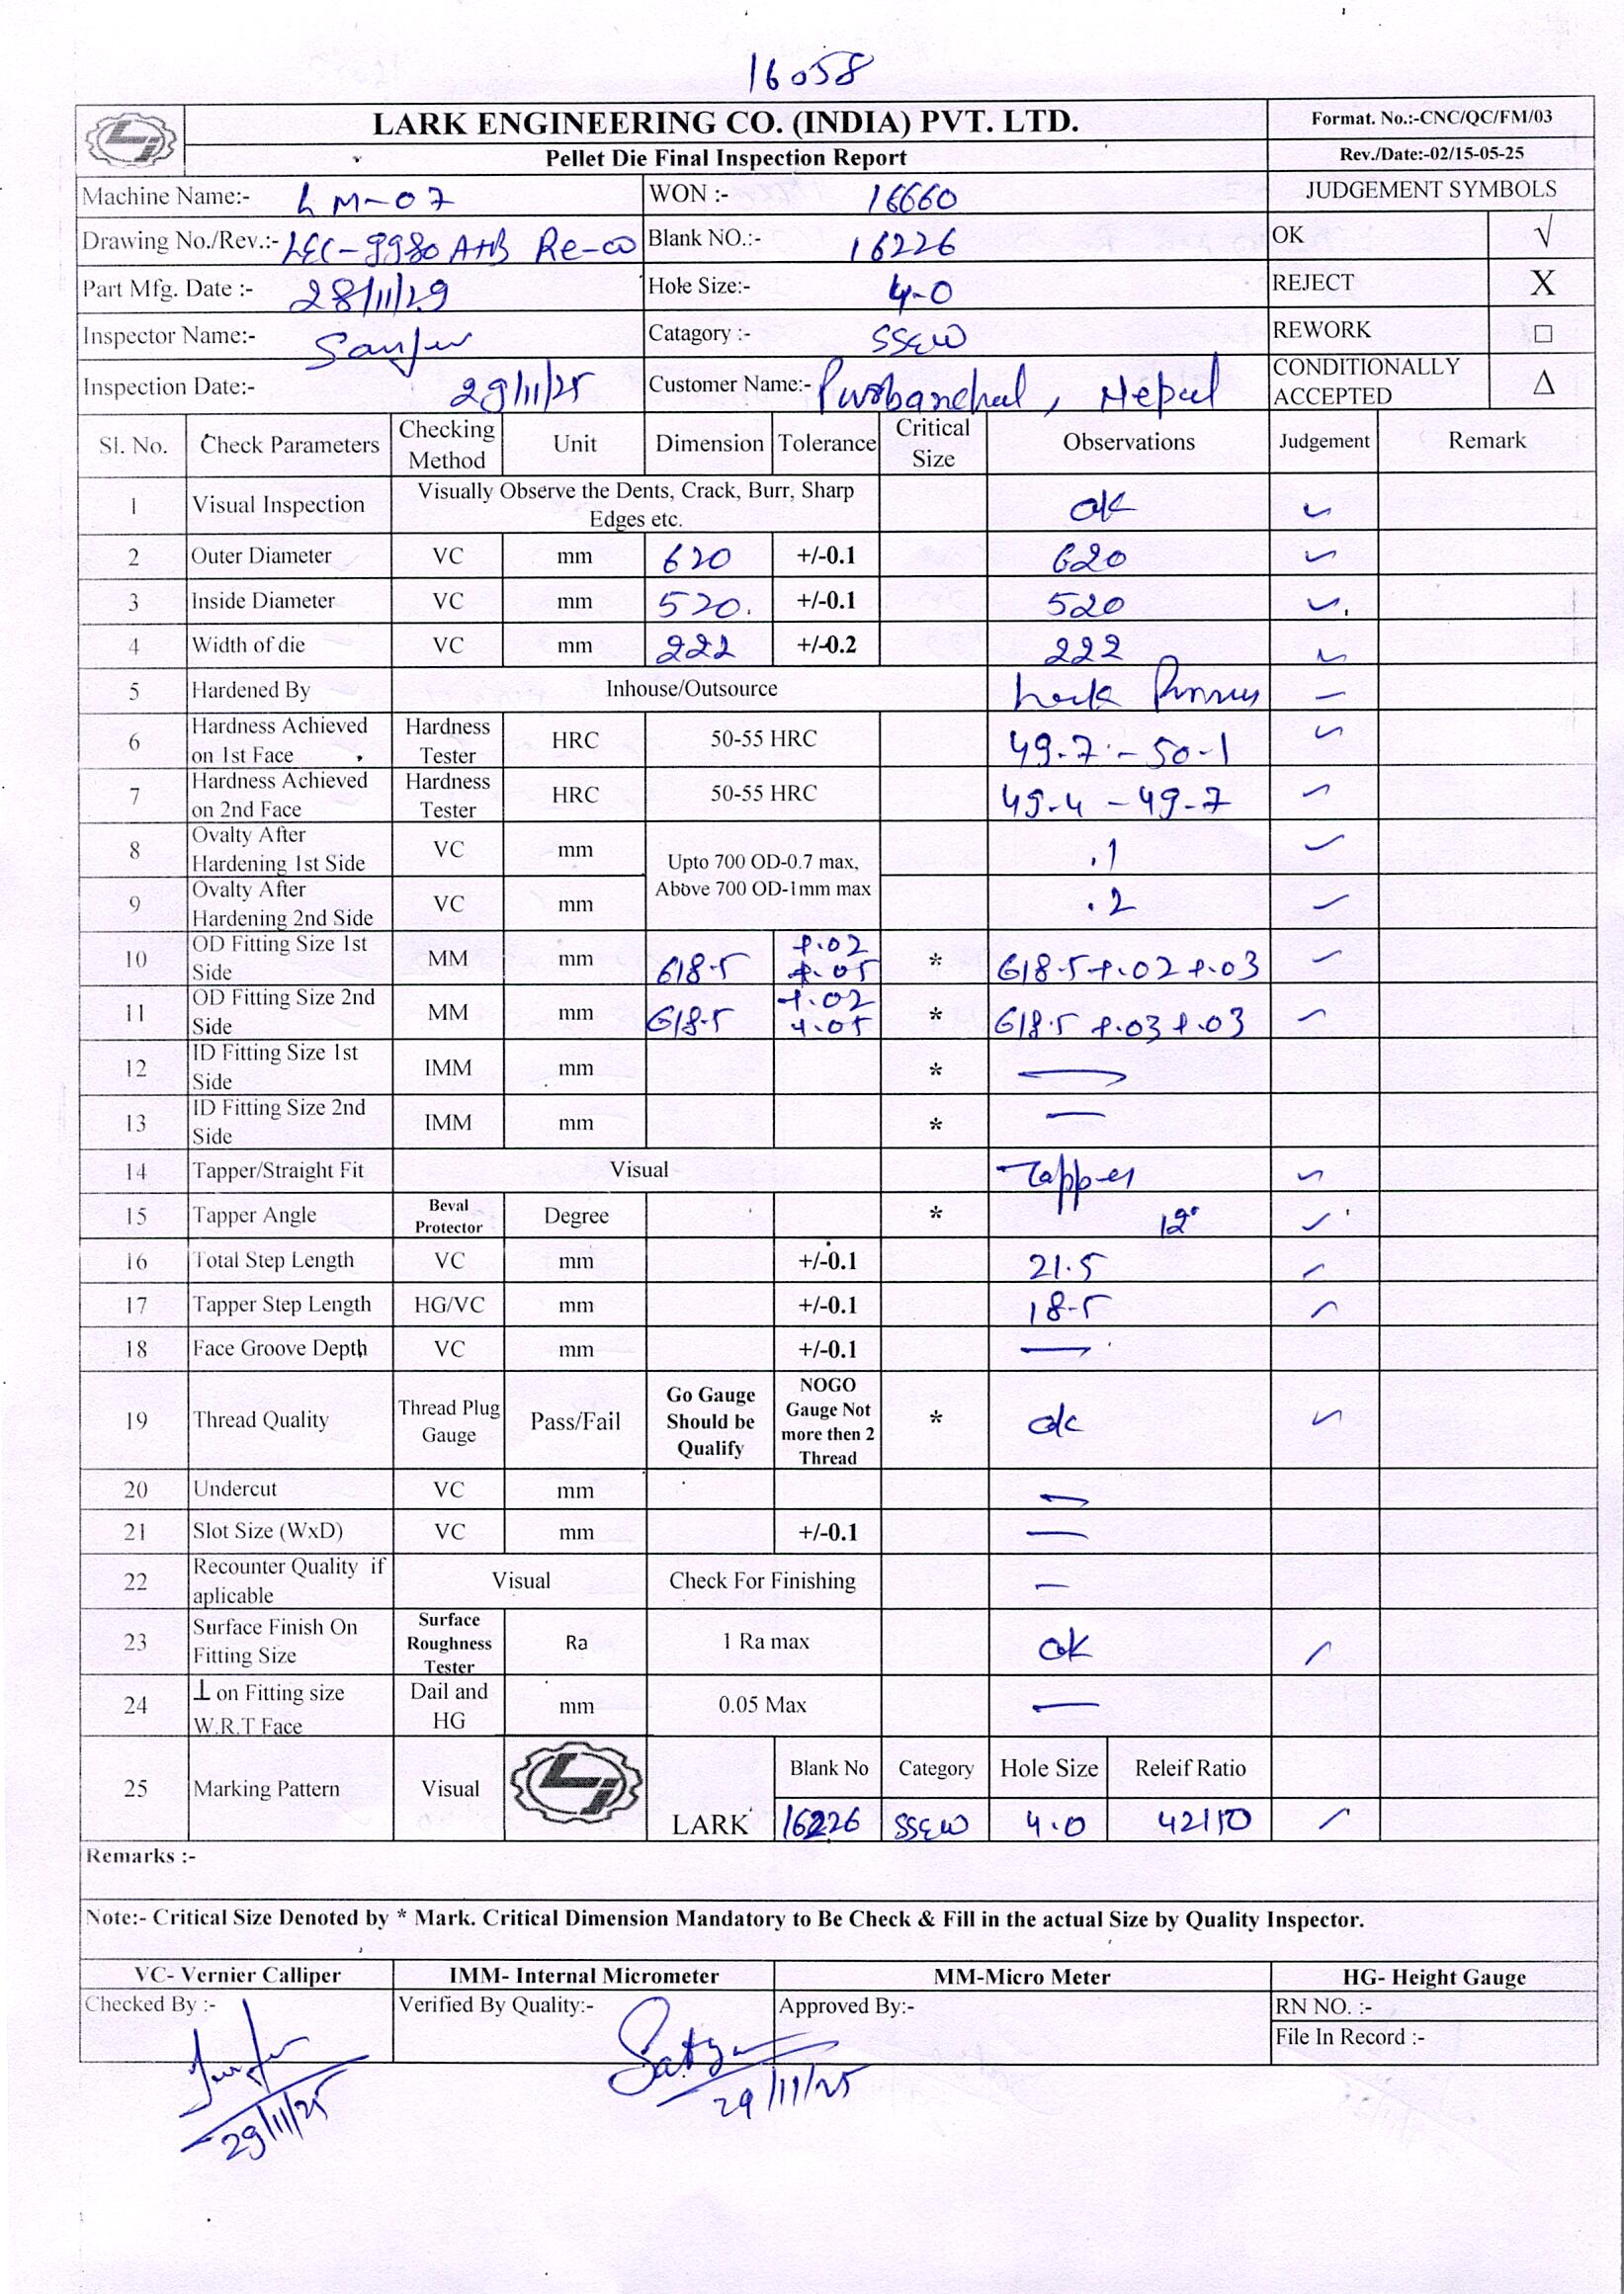 16058
LARK ENGINEERING CO. (INDIA) PVT. LTD.
Format. No.:-CNC/QC/FM/03
Pellet Die Final Inspection Report
Rev./Date:-02/15-05-25
Machine Name:- LM-07 WON :- 16660 JUDGEMENT SYMBOLS
Drawing No./Rev.:- LEC-9980 A+B Re-00 Blank NO.:- 16226 OK √
Part Mfg. Date :- 28/11/29 Hole Size:- 4-0 REJECT X
Inspector Name:- Sanjev Catagory :- SS&W REWORK □
Inspection Date:- 29/11/25 Customer Name:- Purbanchal, Nepal CONDITIONALLY ACCEPTED Δ
Sl. No. Check Parameters Checking Method Unit Dimension Tolerance Critical Size Observations Judgement Remark
1 Visual Inspection Visually Observe the Dents, Crack, Burr, Sharp Edges etc. ok ✓
2 Outer Diameter VC mm 620 +/-0.1 620 ✓
3 Inside Diameter VC mm 520. +/-0.1 520 ✓
4 Width of die VC mm 222 +/-0.2 222 ✓
5 Hardened By Inhouse/Outsource —
6 Hardness Achieved on 1st Face Hardness Tester HRC 50-55 HRC 49-7 - 50-1 ✓
7 Hardness Achieved on 2nd Face Hardness Tester HRC 50-55 HRC 49-4 - 49-7 ✓
8 Ovalty After Hardening 1st Side VC mm Upto 700 OD-0.7 max, Above 700 OD-1mm max .1 ✓
9 Ovalty After Hardening 2nd Side VC mm .2 ✓
10 OD Fitting Size 1st Side MM mm 618-5 +.02 +.05 * 618-5 +.02 +.03 ✓
11 OD Fitting Size 2nd Side MM mm 618-5 +.02 +.05 * 618.5 +.03 +.03 ✓
12 ID Fitting Size 1st Side IMM mm * —
13 ID Fitting Size 2nd Side IMM mm * —
14 Tapper/Straight Fit Visual Tapper ✓
15 Tapper Angle Beval Protector Degree * 12° ✓
16 Total Step Length VC mm +/-0.1 21.5 ✓
17 Tapper Step Length HG/VC mm +/-0.1 18-5 ✓
18 Face Groove Depth VC mm +/-0.1 —
19 Thread Quality Thread Plug Gauge Pass/Fail Go Gauge Should be Qualify NOGO Gauge Not more then 2 Thread * ok ✓
20 Undercut VC mm —
21 Slot Size (WxD) VC mm +/-0.1 —
22 Recounter Quality if aplicable Visual Check For Finishing —
23 Surface Finish On Fitting Size Surface Roughness Tester Ra 1 Ra max ok ✓
24 ⊥ on Fitting size W.R.T Face Dail and HG mm 0.05 Max —
25 Marking Pattern Visual LARK Blank No Category Hole Size Releif Ratio
16226 SS&W 4.0 42/10 ✓
Remarks :-
Note:- Critical Size Denoted by * Mark. Critical Dimension Mandatory to Be Check & Fill in the actual Size by Quality Inspector.
VC- Vernier Calliper IMM- Internal Micrometer MM-Micro Meter HG- Height Gauge
Checked By :- Verified By Quality:- Satya Approved By:- RN NO. :-
File In Record :-
29/11/25 29/11/25